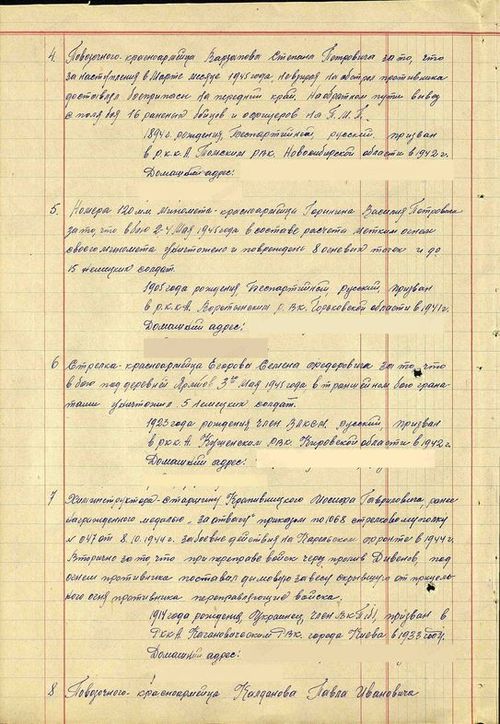 4. Повозочного-красноармейца Варзапова Степана Петровича за то, что
за наступления в Марте месяце 1945 года, невзирая на обстрел противника
доставлял боеприпасы на передний край. На обратном пути вывез
с поля боя 16 раненых бойцов и офицеров на П.М.П.
1894 г. рождения, Беспартийный, русский, призван
в р.к.к.А. Томским рвк. Новосибирской области в 1942 г.
Домашний адрес:
5. Номера 120 мм миномета-красноармейца Горинина Василия Петровича
за то, что в бою 2-4 Мая 1945 года в составе расчета метким огнем
своего миномета уничтожено и повреждено 8 огневых точек и до
15 немецких солдат.
1905 года рождения, Беспартийный, русский, призван
в р.к.к.А. Воротынским р.вк. Горьковской области в 1941 г.
Домашний адрес:
6 Стрелка-красноармейца Егорова Семена Федоровича за то, что
в бою под деревней 3го Мая 1945 года в траншейном бою грана-
тами уничтожил 5 немецких солдат.
1923 года рождения член ВЛКСМ, русский, призван
в рккА рвк. Кировской области в 1942 г.
Домашний адрес:
7 Химинструктора-старшину Кропивницкого Иосифа Гавриловича, ранее
награжденного медалью "за отвагу" приказом по 1068 стрелковому полку
N 047 от 8.10.1944 г. за боевые действия на Карельском фронте в 1944 г.
Вторично за то что при переправе войск через пролив Дивенов, под
огнем противника поставил дымовую завесу скрывшую от прицель-
ного огня противника переправляющие войска.
1914 года рождения, Украинец, член ВКП(б), призван в
РккА Кагановичским Рвк. города Киева в 1933 году.
Домашний адрес:
8 Повозочного-красноармейца Калданова Павла Ивановича